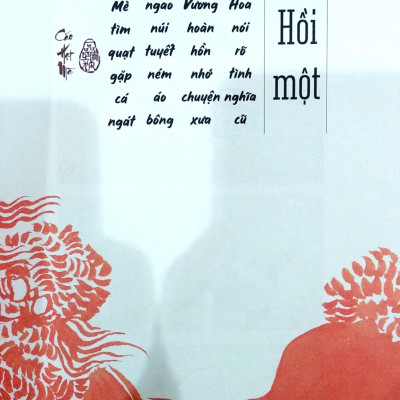 Hồi một
Hoa nói rõ tình nghĩa cũ
Vương hoàn hồn nhớ chuyện xưa
ngao núi tuyết ném áo bông
Mè tìm quạt gặp cá ngát
Cáo Hạt Mè